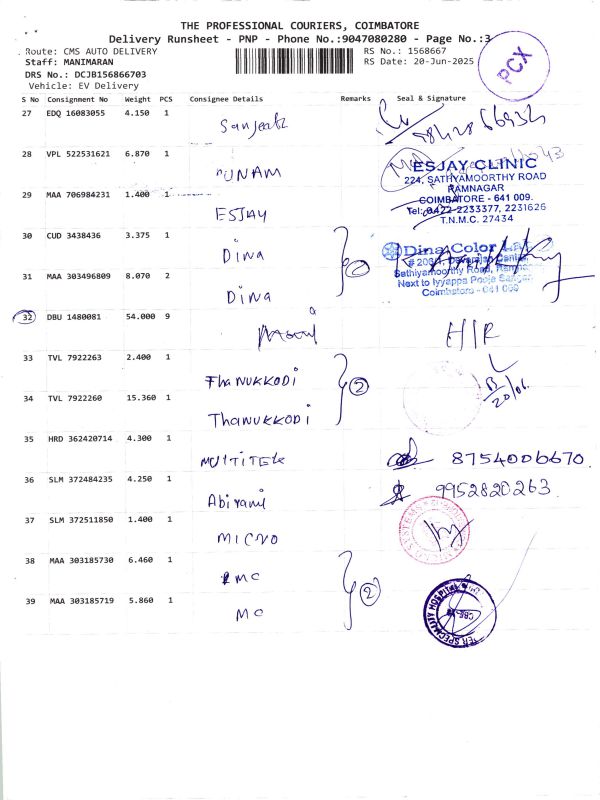 THE PROFESSIONAL COURIERS, COIMBATORE
Delivery Runsheet - PNP - Phone No.:9047080280 - Page No.:3
Route: CMS AUTO DELIVERY RS No.: 1568667
Staff: MANIMARAN RS Date: 20-Jun-2025
DRS No.: DCJB156866703
Vehicle: EV Delivery
PCX
S No Consignment No Weight PCS Consignee Details Remarks Seal & Signature
27 EDQ 16083055 4.150 1
28 VPL 522531621 6.870 1
UNAM
29 MAA 706984231 1.400 1
ESJAY
ESJAY CLINIC
224, SATHYAMOORTHY ROAD
RAMNAGAR
COIMBATORE - 641 009.
Tel: 0422-2233377, 2231626
T.N.M.C. 27434
30 CUD 3438436 3.375 1
Dina
31 MAA 303496809 8.070 2
Dina
Dina Color Lab
Sathyamoorthy Road, Ramnagar
Next to Iyyappa Pooja Sangam
Coimbatore - 641 009
32 DBU 1480081 54.000 9
H/R
33 TVL 7922263 2.400 1
Thanukkodi
2
20/06
34 TVL 7922260 15.360 1
Thanukkodi
35 HRD 362420714 4.300 1
MULTITEK
8754006670
36 SLM 372484235 4.250 1
Abirami
9952820263
37 SLM 372511850 1.400 1
MICRO
38 MAA 303185730 6.460 1
MC
2
39 MAA 303185719 5.860 1
MC
SPECIALITY HOSPITAL